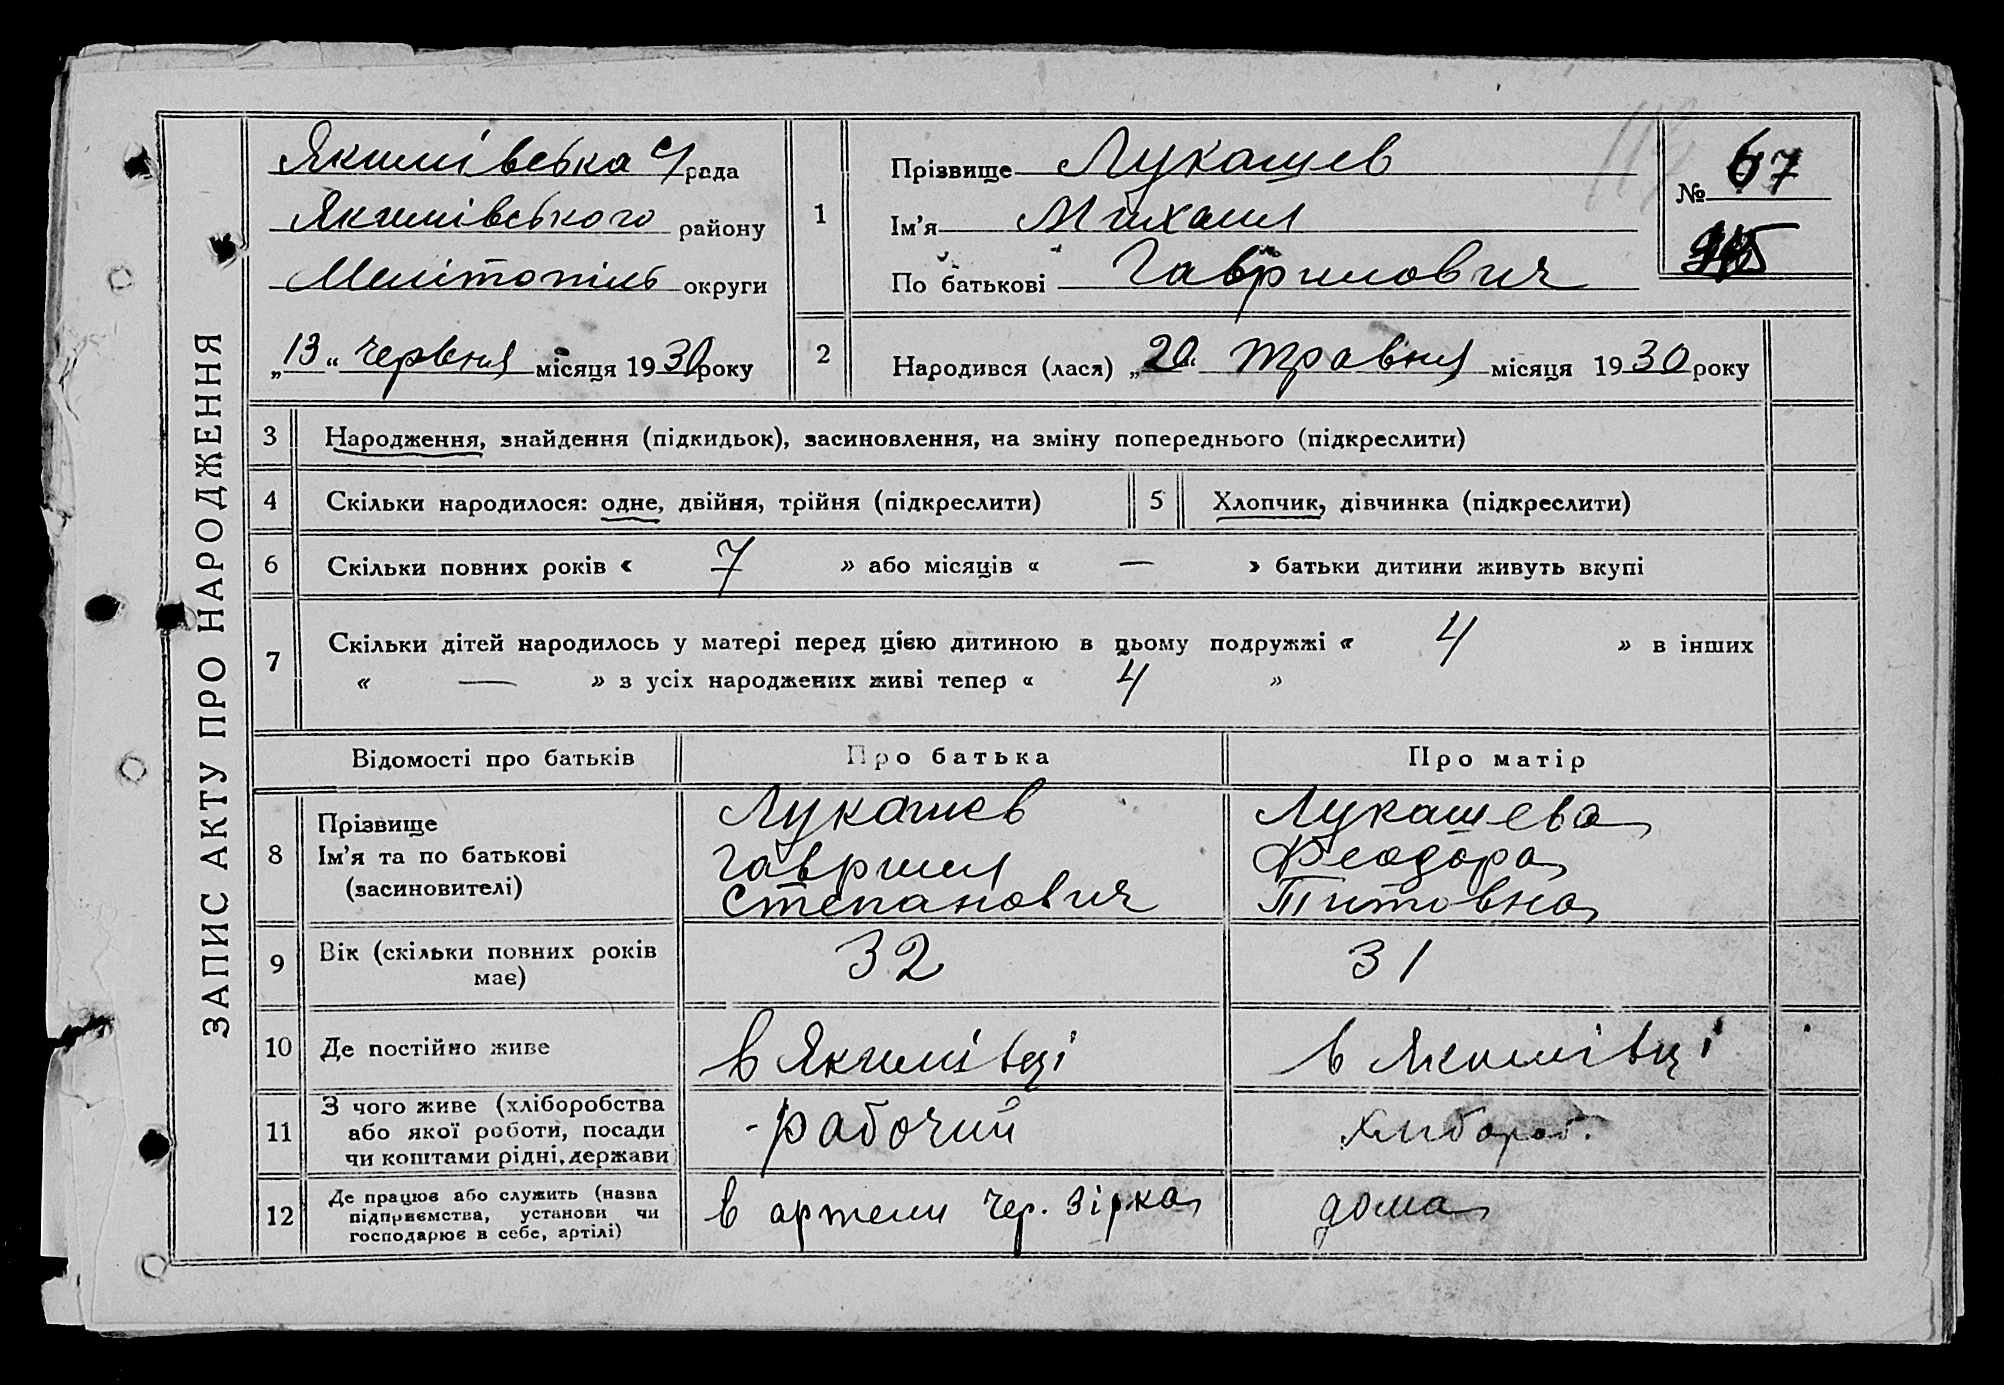 ЗАПИС АКТУ ПРО НАРОДЖЕННЯ
Якимівська с/рада
Якимівського району
Мелітопіль округи
„13“ червня місяця 1930 року
1
Прізвище Лукашев
Ім'я Михаил
По батькові Гаврилович
№ 67
2
Народився (лася) „20“ травня місяця 1930 року
3 Народження, знайдення (підкидьок), засиновлення, на зміну попереднього (підкреслити)
4 Скільки народилося: одне, двійня, трійня (підкреслити)
5 Хлопчик, дівчинка (підкреслити)
6 Скільки повних років « 7 » або місяців « — » батьки дитини живуть вкупі
7 Скільки дітей народилось у матері перед цією дитиною в цьому подружжі « 4 » в інших
« — » з усіх народжених живі тепер « 4 »
Відомості про батьків Про батька Про матір
8
Прізвище
Ім'я та по батькові
(засиновителі)
Лукашев
Гаврил
Степанович
Лукашева
Феодора
Титовна
9 Вік (скільки повних років
має)
32
31
10 Де постійно живе
в Якимівці
в Якимівці
11
З чого живе (хліборобства
або якої роботи, посади
чи коштами рідні, держави
- рабочий
хлибороб.
12
Де працює або служить (назва
підприємства, установи чи
господарює в себе, артілі)
в артели Чер. Зірка
дома